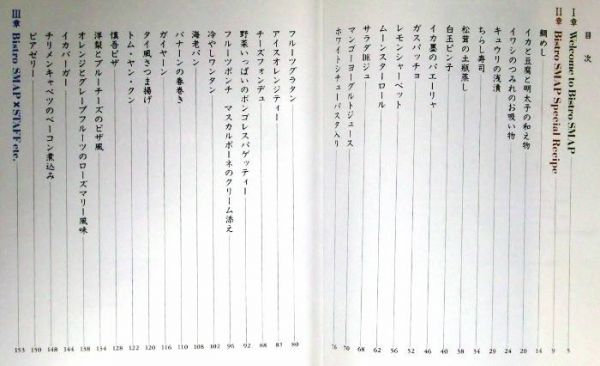 目次
I章 Welcome to Bistro SMAP 5
II章 Bistro SMAP Special Recipe 9
鯛めし 14
イカと豆腐と明太子の和え物 20
イワシのつみれのお吸い物 24
キュウリの浅漬 28
ちらし寿司 34
松茸の土瓶蒸し 38
白玉ピン子 40
イカ墨のパエーリャ 46
ガスパッチョ 52
レモンシャーベット 56
ムーンスターロール 62
サラダdeジュ 68
マンゴーヨーグルトジュース 70
ホワイトシチューパスタ入り 76
フルーツグラタン 80
アイスオレンジティー 81
チーズフォンデュ 88
野菜いっぱいのボンゴレスパゲッティー 92
フルーツポンチ マスカルポーネのクリーム添え 96
冷やしワンタン 102
海老パン 108
バナーンの春巻き 110
ガイヤーン 116
タイ風さつま揚げ 120
トム・ヤン・クン 122
慎吾ピザ 128
洋梨とブルーチーズのピザ風 134
オレンジとグレープフルーツのローズマリー風味 138
イカバーガー 144
チリメンキャベツのベーコン煮込み 148
ビアゼリー 150
III章 Bistro SMAP×STAFF etc. 153